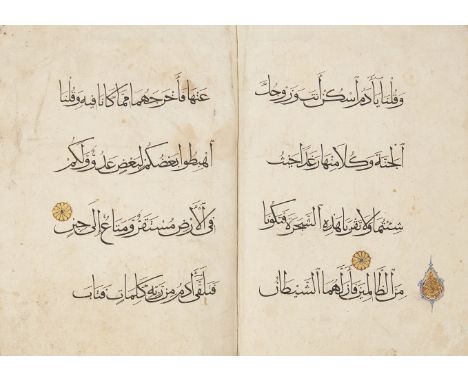 وقلنا يا آدم اسكن أنت وزوجك
الجنة وكلا منها رغدا حيث
شئتما ولا تقربا هذه الشجرة فتكونا
من الظالمين فأزلهما الشيطان
عنها فأخرجهما مما كانا فيه وقلنا
اهبطوا بعضكم لبعض عدو ولكم
في الأرض مستقر ومتاع إلى حين
فتلقى آدم من ربه كلمات فتاب